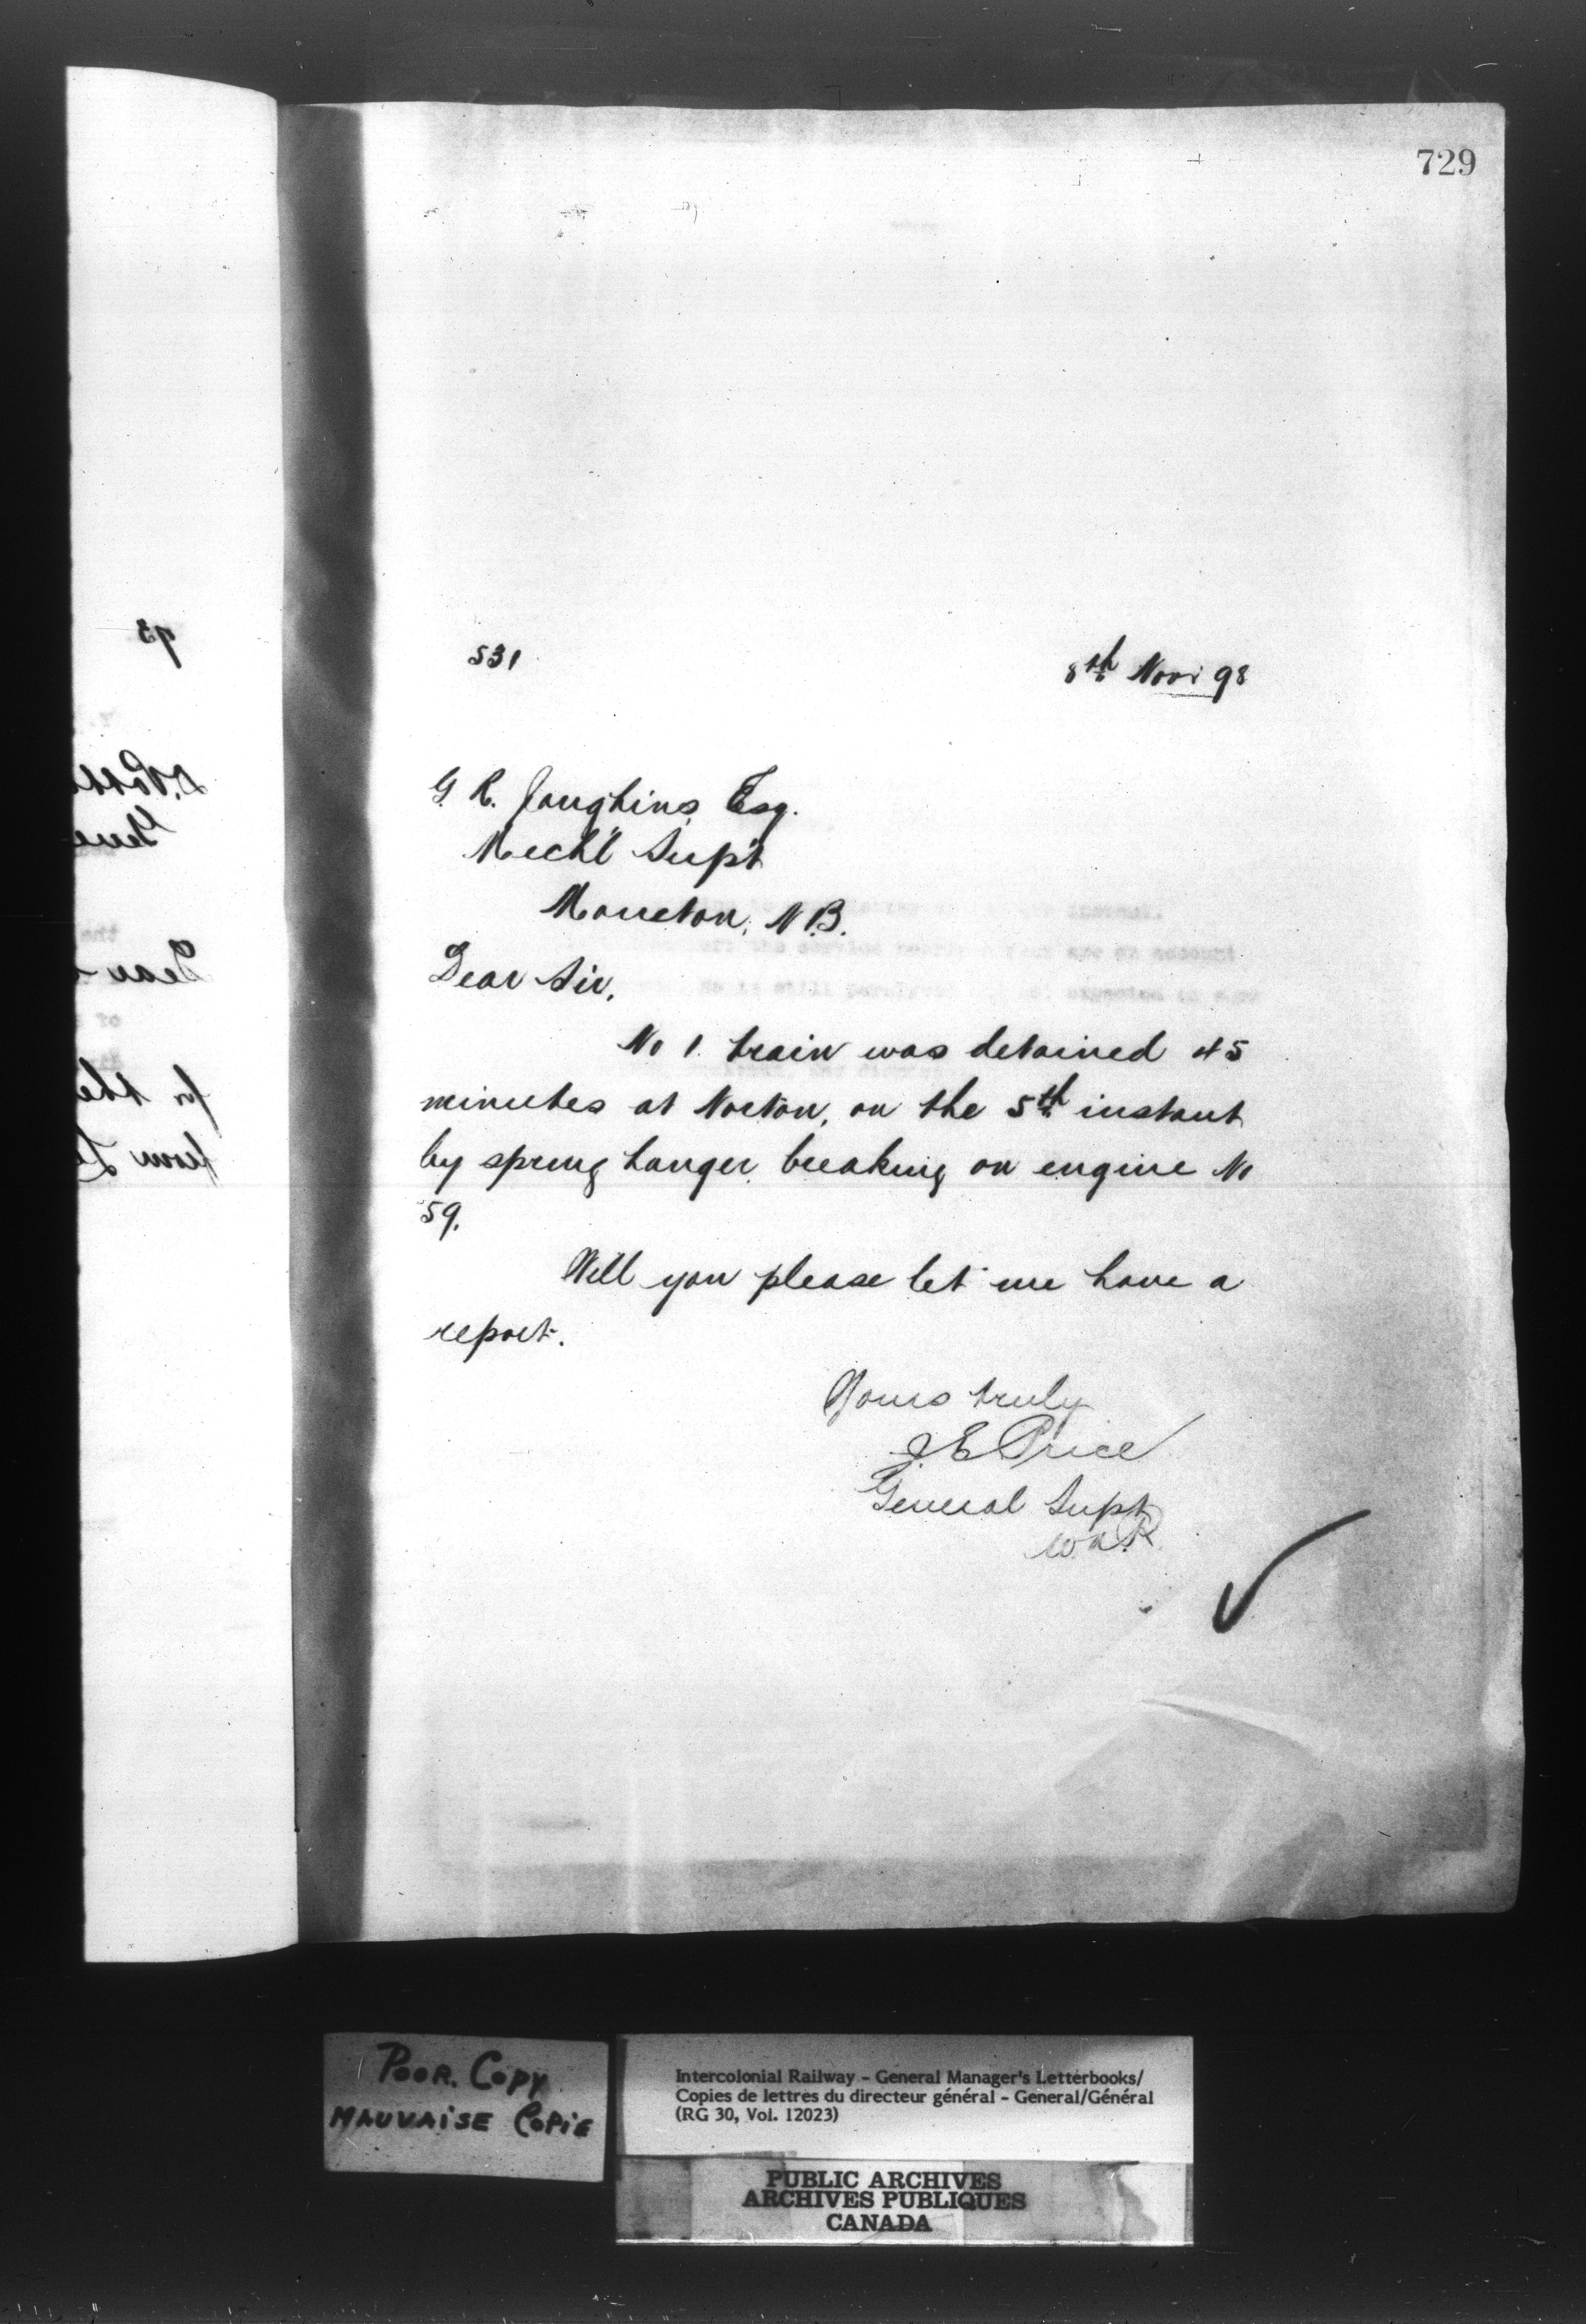 729
531
8th Novr 98
G. R. Joughins Esq.
Mechl Supt
Moncton, N.B.
Dear Sir,
No 1 train was detained 45
minutes at Norton, on the 5th instant
by spring hanger breaking on engine No
59.
Will you please let me have a
report.
Yours truly
J E Price
General Supt
POOR. COPY
MAUVAISE COPIE
Intercolonial Railway - General Manager's Letterbooks/
Copies de lettres du directeur général - General/Général
(RG 30, Vol. 12023)
PUBLIC ARCHIVES
ARCHIVES PUBLIQUES
CANADA